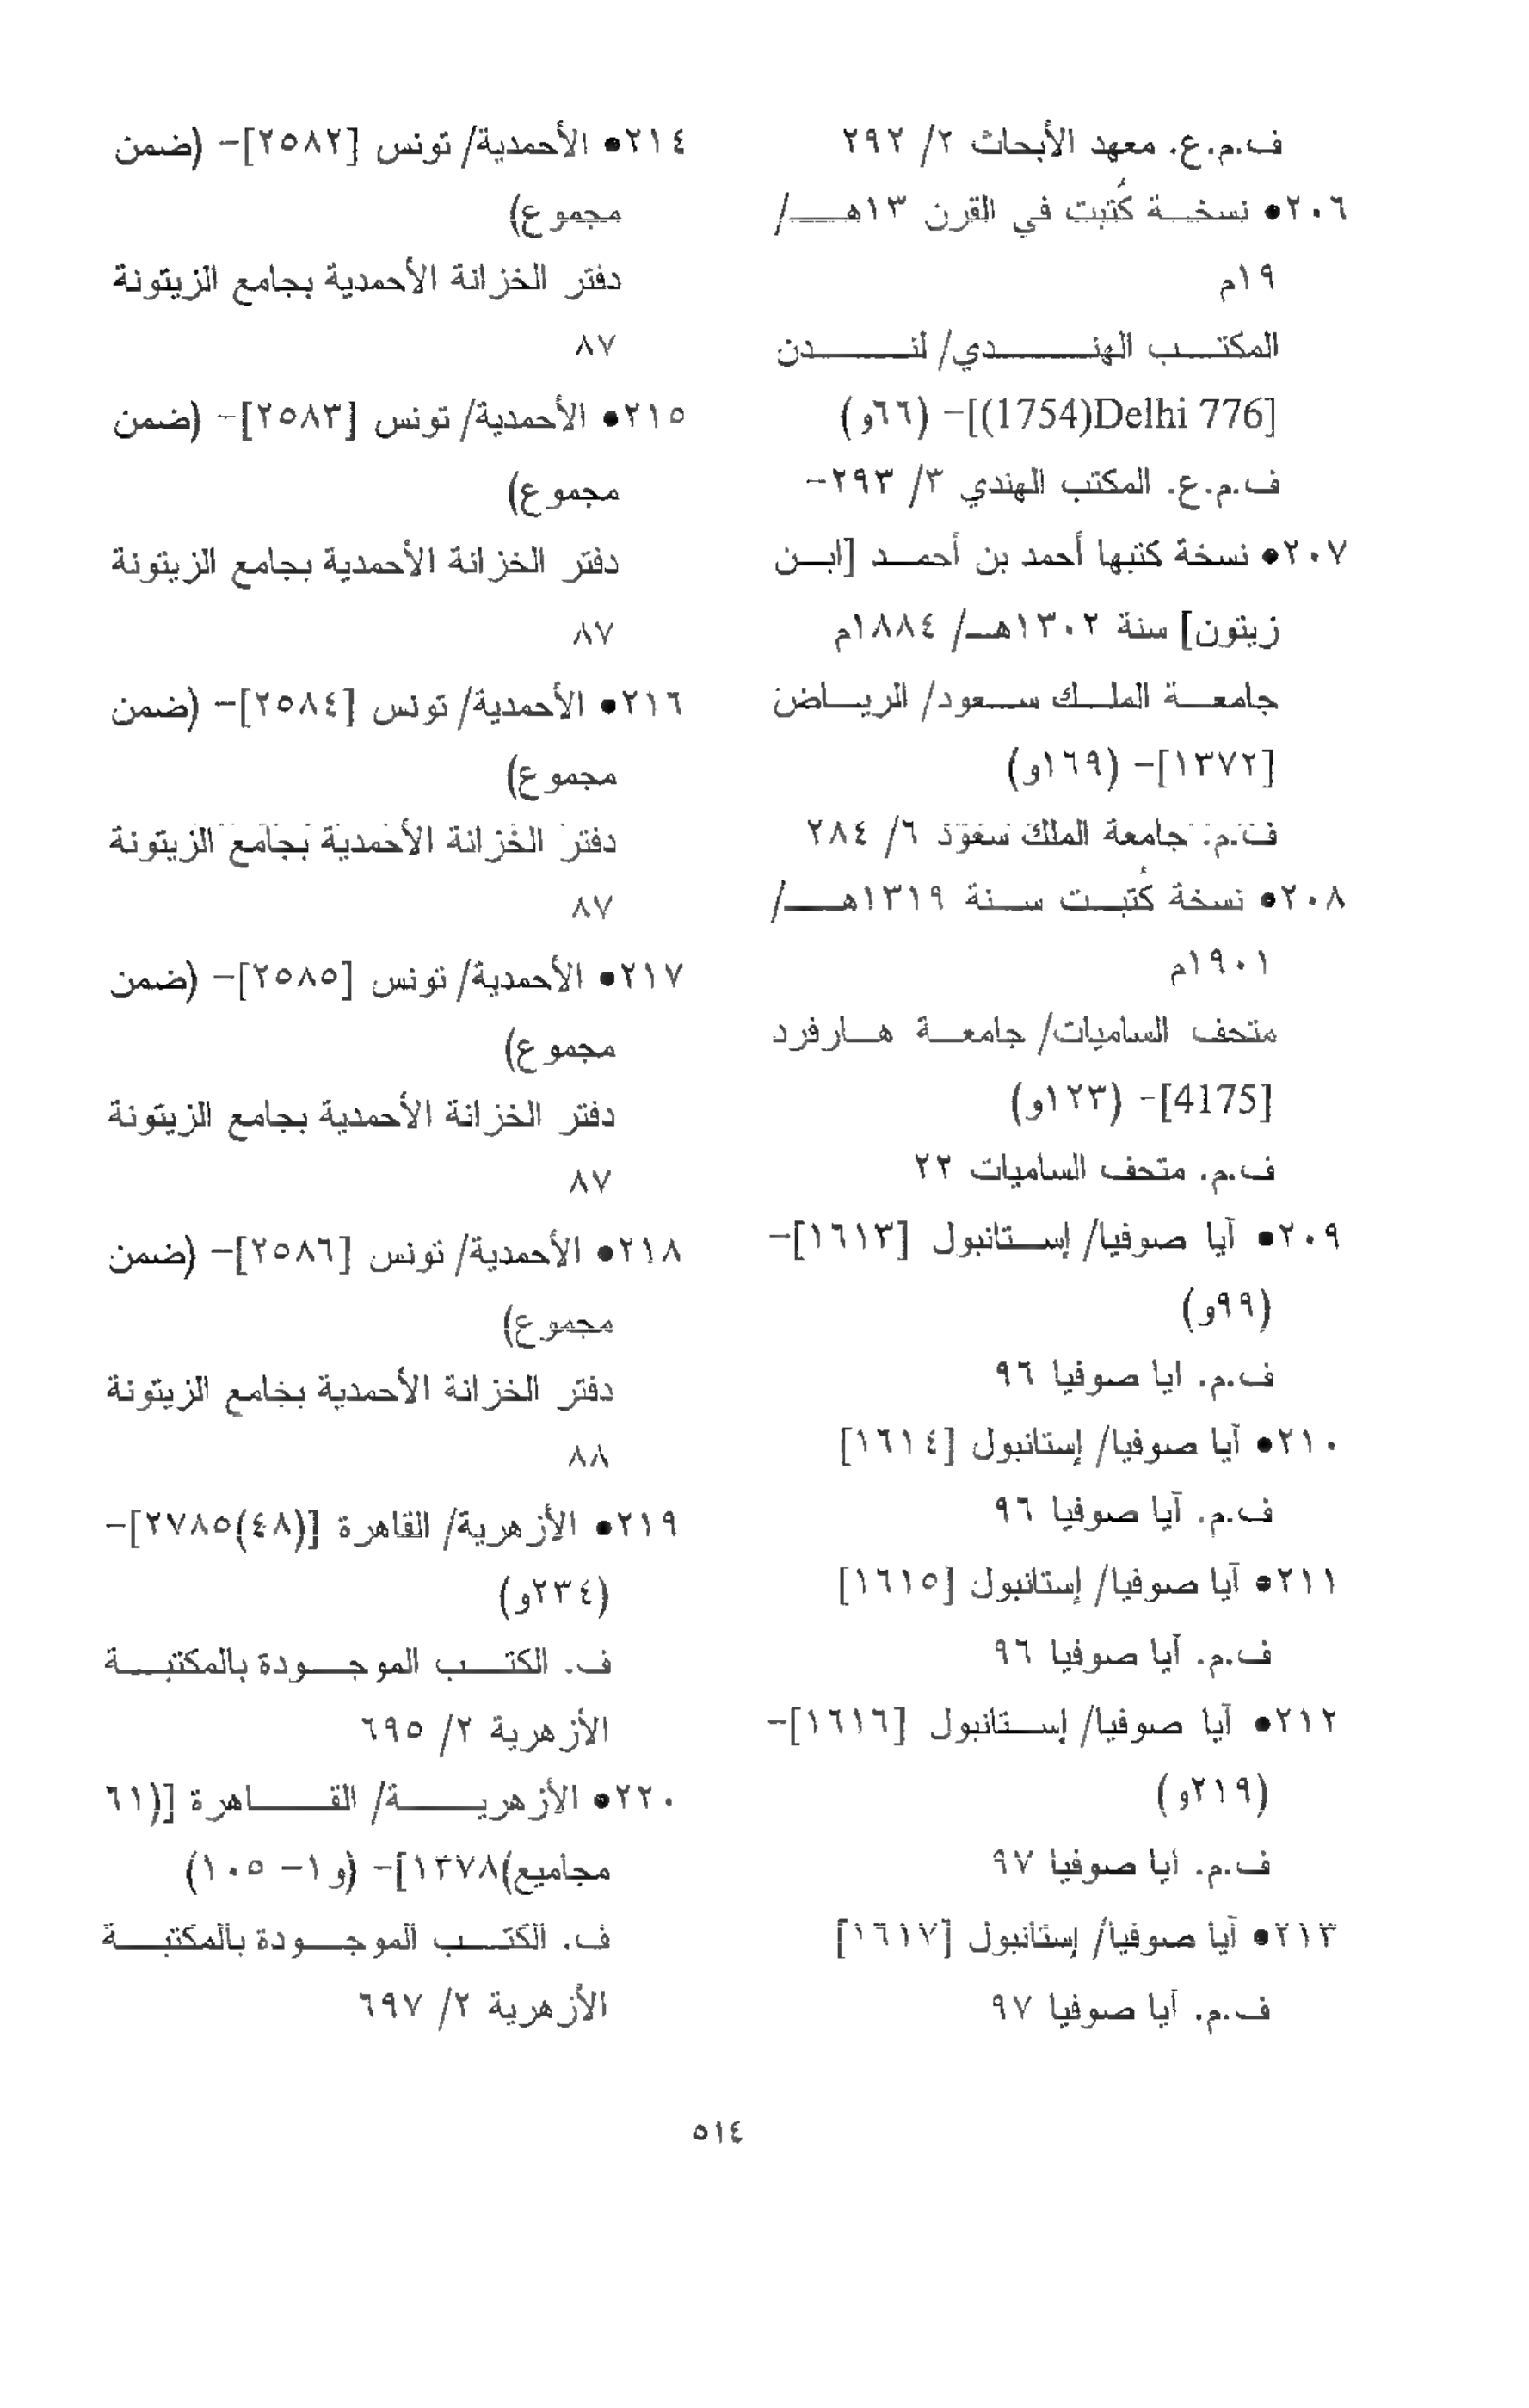 ف.م.ع. معهد الأبحاث ٢/ ٢٩٢
٢٠٦• نسخة كُتبت في القرن ١٣هـ/
١٩م
المكتب الهندي/ لندن
[Delhi 776(1754)]- (٦٦و)
ف.م.ع. المكتب الهندي ٣/ ٢٩٣-
٢٠٧• نسخة كتبها أحمد بن أحمد [ابن
زيتون] سنة ١٣٠٢هـ/ ١٨٨٤م
جامعة الملك سعود/ الرياض
[١٣٧٢]- (١٦٩و)
ف.م. جامعة الملك سعود ٦/ ٢٨٤
٢٠٨• نسخة كُتبت سنة ١٣١٩هـ/
١٩٠١م
متحف الساميات/ جامعة هارفرد
[4175]- (١٢٣و)
ف.م. متحف الساميات ٢٢
٢٠٩• آيا صوفيا/ إستانبول [١٦١٣]-
(٩٩و)
ف.م. ايا صوفيا ٩٦
٢١٠• آيا صوفيا/ إستانبول [١٦١٤]
ف.م. آيا صوفيا ٩٦
٢١١• آيا صوفيا/ إستانبول [١٦١٥]
ف.م. آيا صوفيا ٩٦
٢١٢• آيا صوفيا/ إستانبول [١٦١٦]-
(٢١٩و)
ف.م. آيا صوفيا ٩٧
٢١٣• آيا صوفيا/ إستانبول [١٦١٧]
ف.م. آيا صوفيا ٩٧
٢١٤• الأحمدية/ تونس [٢٥٨٢]- (ضمن
مجموع)
دفتر الخزانة الأحمدية بجامع الزيتونة
٨٧
٢١٥• الأحمدية/ تونس [٢٥٨٣]- (ضمن
مجموع)
دفتر الخزانة الأحمدية بجامع الزيتونة
٨٧
٢١٦• الأحمدية/ تونس [٢٥٨٤]- (ضمن
مجموع)
دفتر الخزانة الأحمدية بجامع الزيتونة
٨٧
٢١٧• الأحمدية/ تونس [٢٥٨٥]- (ضمن
مجموع)
دفتر الخزانة الأحمدية بجامع الزيتونة
٨٧
٢١٨• الأحمدية/ تونس [٢٥٨٦]- (ضمن
مجموع)
دفتر الخزانة الأحمدية بجامع الزيتونة
٨٨
٢١٩• الأزهرية/ القاهرة [(٤٨)٢٧٨٥]-
(٢٣٤و)
ف. الكتب الموجودة بالمكتبة
الأزهرية ٢/ ٦٩٥
٢٢٠• الأزهرية/ القاهرة [(٦١
مجاميع)١٣٧٨]- (و١- ١٠٥)
ف. الكتب الموجودة بالمكتبة
الأزهرية ٢/ ٦٩٧
٥١٤